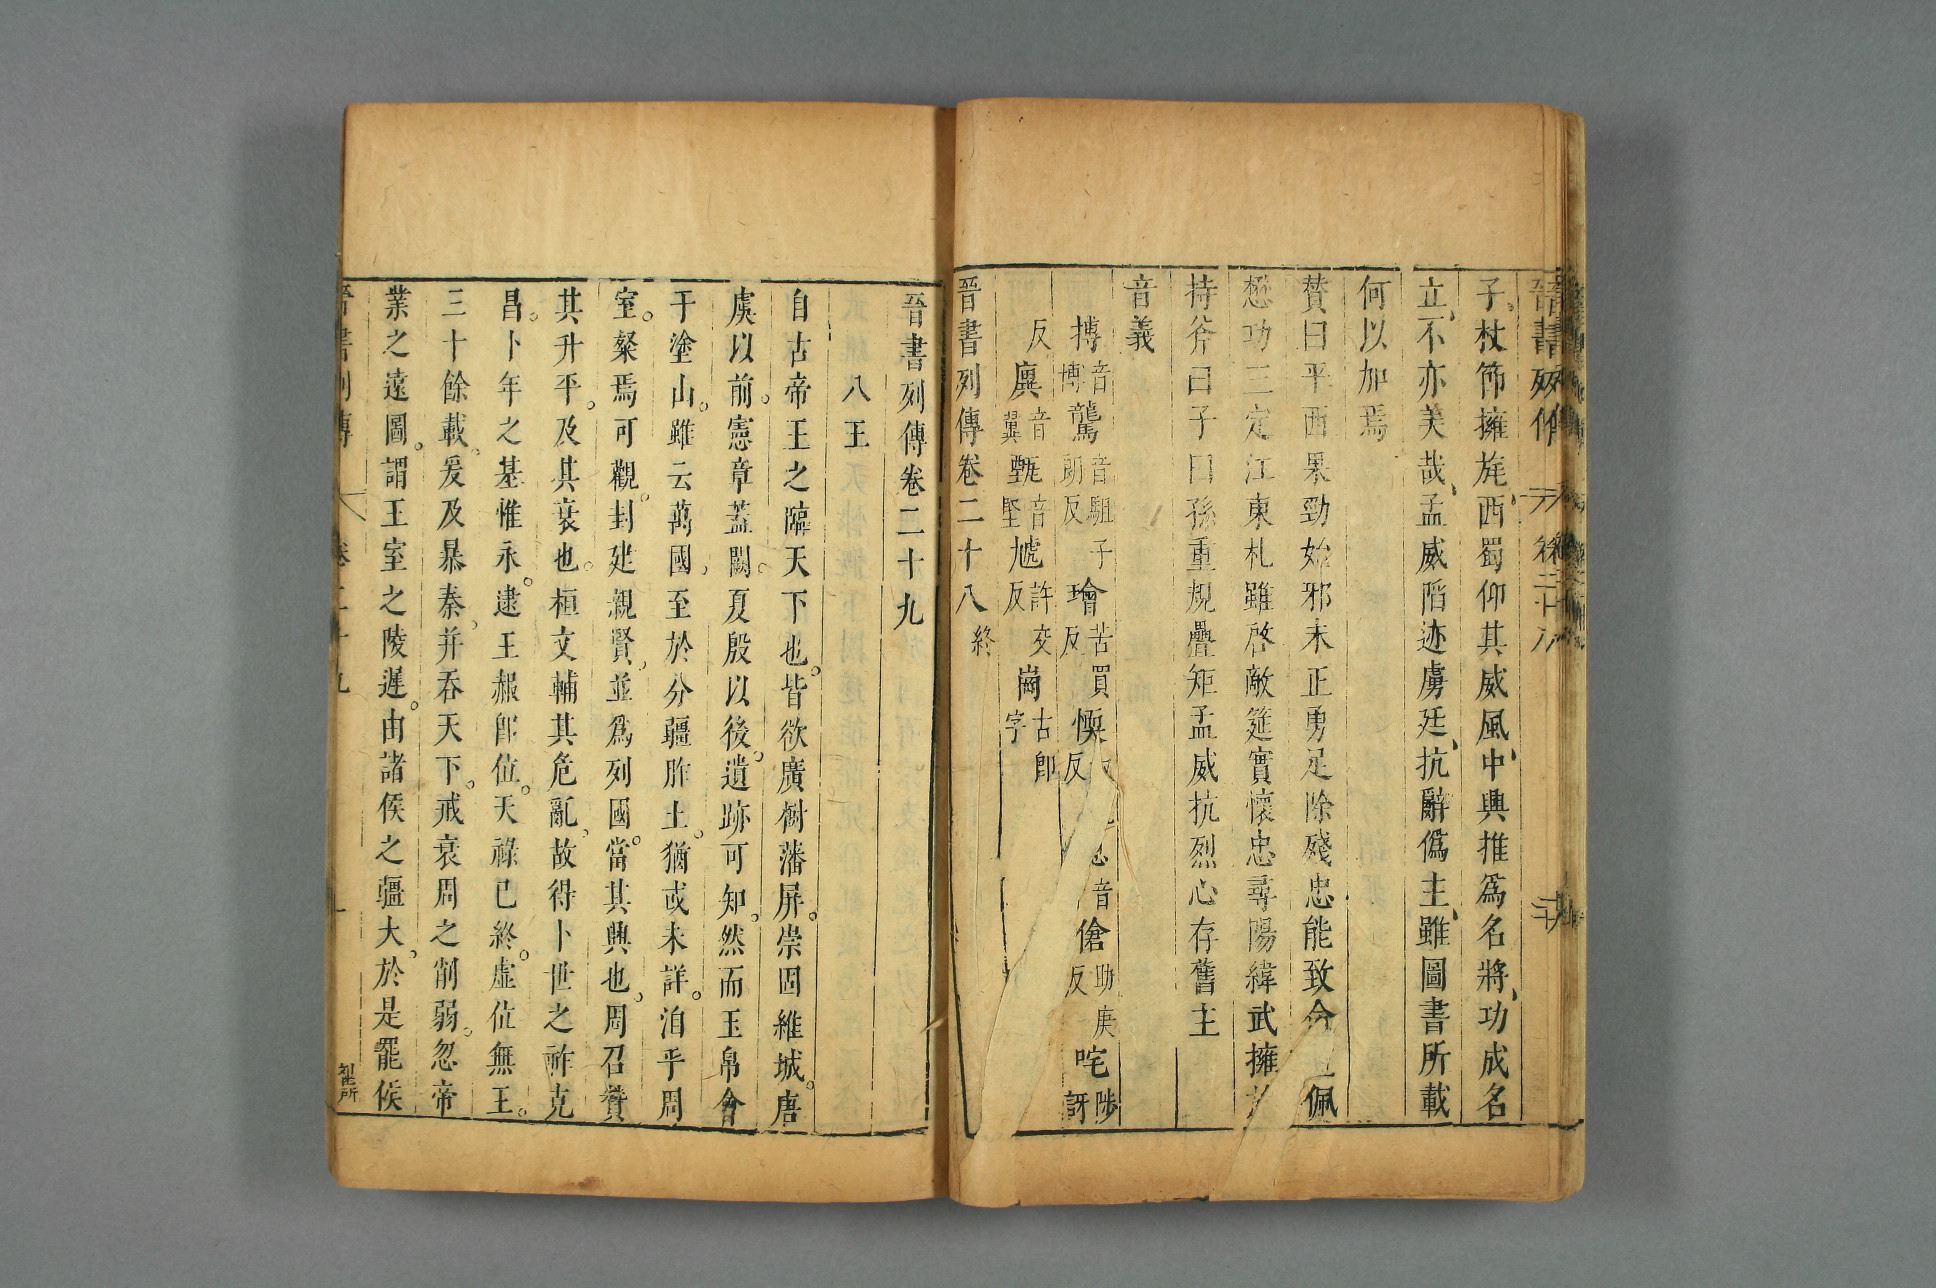 晉書列傳 卷二十八
子杖節擁旄西蜀仰其威風中興推爲名將功成名
立不亦美哉孟威陷迹虜廷抗辭僞主雖圖書所載
何以加焉
贊曰平西果勁始邪末正勇足除殘忠能致命 佩
愆功三定江東札雖啓敵筵實懷忠尋陽緯武擁
持斧曰子曰孫重規疊矩孟威抗烈心存舊主
音義
搏音博驁音駔子朗反璯苦買反愞 反 音傖助庚反咤陟訝
反廙音翼甄音堅虓許交反崗古郎字
晉書列傳卷二十八終
晉書列傳卷二十九
八王
自古帝王之臨天下也皆欲廣樹藩屏崇固維城唐
虞以前憲章蓋闕夏殷以後遺跡可知然而玉帛會
于塗山雖云萬國至於分疆胙土猶或未詳洎乎周
室粲焉可觀封建親賢並爲列國當其興也周召贊
其升平及其衰也桓文輔其危亂故得卜世之祚克
昌卜年之基惟永逮王赧卽位天祿已終虛位無王
三十餘載爰及暴秦并吞天下戒衰周之削弱忽帝
業之遠圖謂王室之陵遲由諸侯之疆大於是罷侯
晉書列傳 卷二十九 一